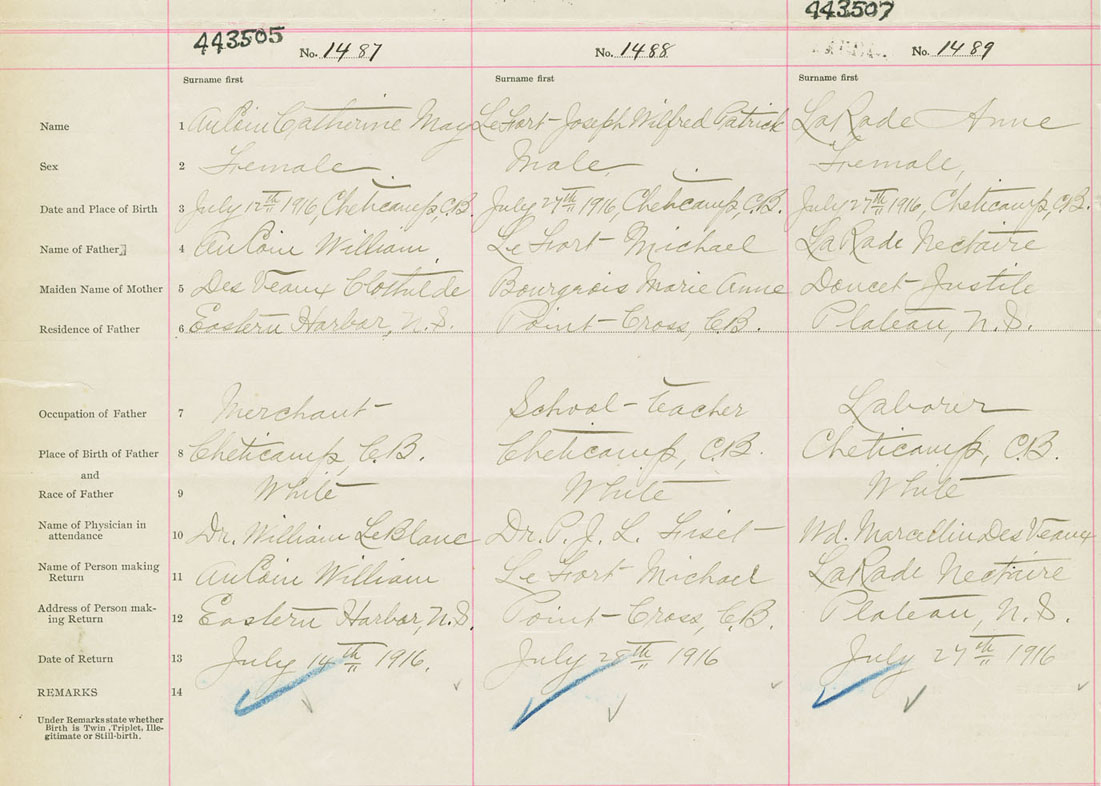 443507
443505
No. 1487
No. 1488
No. 1489
Surname first
Surname first
Surname first
Name 1 AuCoin Catherine May LeFort - Joseph Wilfred Patrick LaRade Anne
Sex 2 Female Male, Female,
Date and Place of Birth 3 July 12th 1916, Cheticamp, C.B. July 27th 1916, Cheticamp, C.B. July 27th 1916, Cheticamp, C.B.
Name of Father 4 AuCoin William LeFort - Michael LaRade Nectaire
Maiden Name of Mother 5 Des Veaux Clothilde Bourgeois Marie Anne Doucet - Justile
Residence of Father 6 Eastern Harbor, N.S. Point - Cross, C.B. Plateau, N.S.
Occupation of Father 7 Merchant School - teacher Laborer
Place of Birth of Father 8 Cheticamp, C.B. Cheticamp, C.B. Cheticamp, C.B.
and
Race of Father 9 White White White
Name of Physician in attendance 10 Dr. William LeBlanc Dr. P. J. L. Fiset Wd. Marcellin DesVeaux
Name of Person making Return 11 AuCoin William LeFort Michael LaRade Nectaire
Address of Person mak-ing Return 12 Eastern Harbor, N.S. Point - Cross, C.B. Plateau, N.S.
Date of Return 13 July 14th 1916. July 28th 1916 July 27th 1916
REMARKS 14
Under Remarks state whether
Birth is Twin, Triplet, Ille-
gitimate or Still-birth.